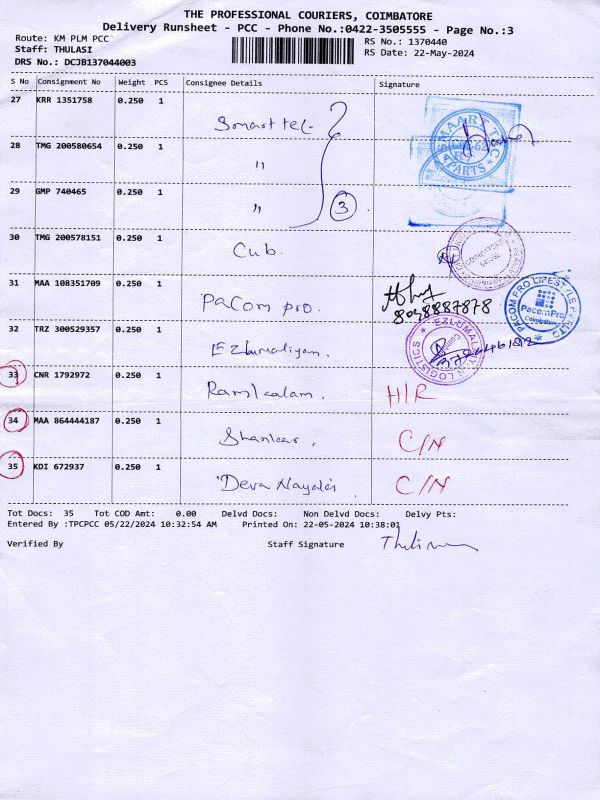 THE PROFESSIONAL COURIERS, COIMBATORE
Delivery Runsheet - PCC - Phone No.:0422-3505555 - Page No.:3
Route: KM PLM PCC
RS No.: 1370440
Staff: THULASI
RS Date: 22-May-2024
DRS No.: DCJB137044003
S No Consignment No Weight PCS Consignee Details Signature
27 KRR 1351758 0.250 1 Smaart tec
28 TMG 200580654 0.250 1 "
29 GMP 740465 0.250 1 " 3
SMAART TEC
PARTS
30 TMG 200578151 0.250 1 Cub.
31 MAA 108351709 0.250 1 Pacom pro.
8098887878
PACOM PRO LIFESTYLE PVT LTD
PacomPro
Coimbatore
32 TRZ 300529357 0.250 1 Ezhumaliyan.
EZLUMALIYAN LOGISTICS
33 CNR 1792972 0.250 1 H/R
34 MAA 864444187 0.250 1 Shankar. C/N
35 KDI 672937 0.250 1 Deva Nayaki C/N
Tot Docs: 35 Tot COD Amt: 0.00 Delvd Docs: Non Delvd Docs: Delvy Pts:
Entered By :TPCPCC 05/22/2024 10:32:54 AM Printed On: 22-05-2024 10:38:01
Verified By Staff Signature